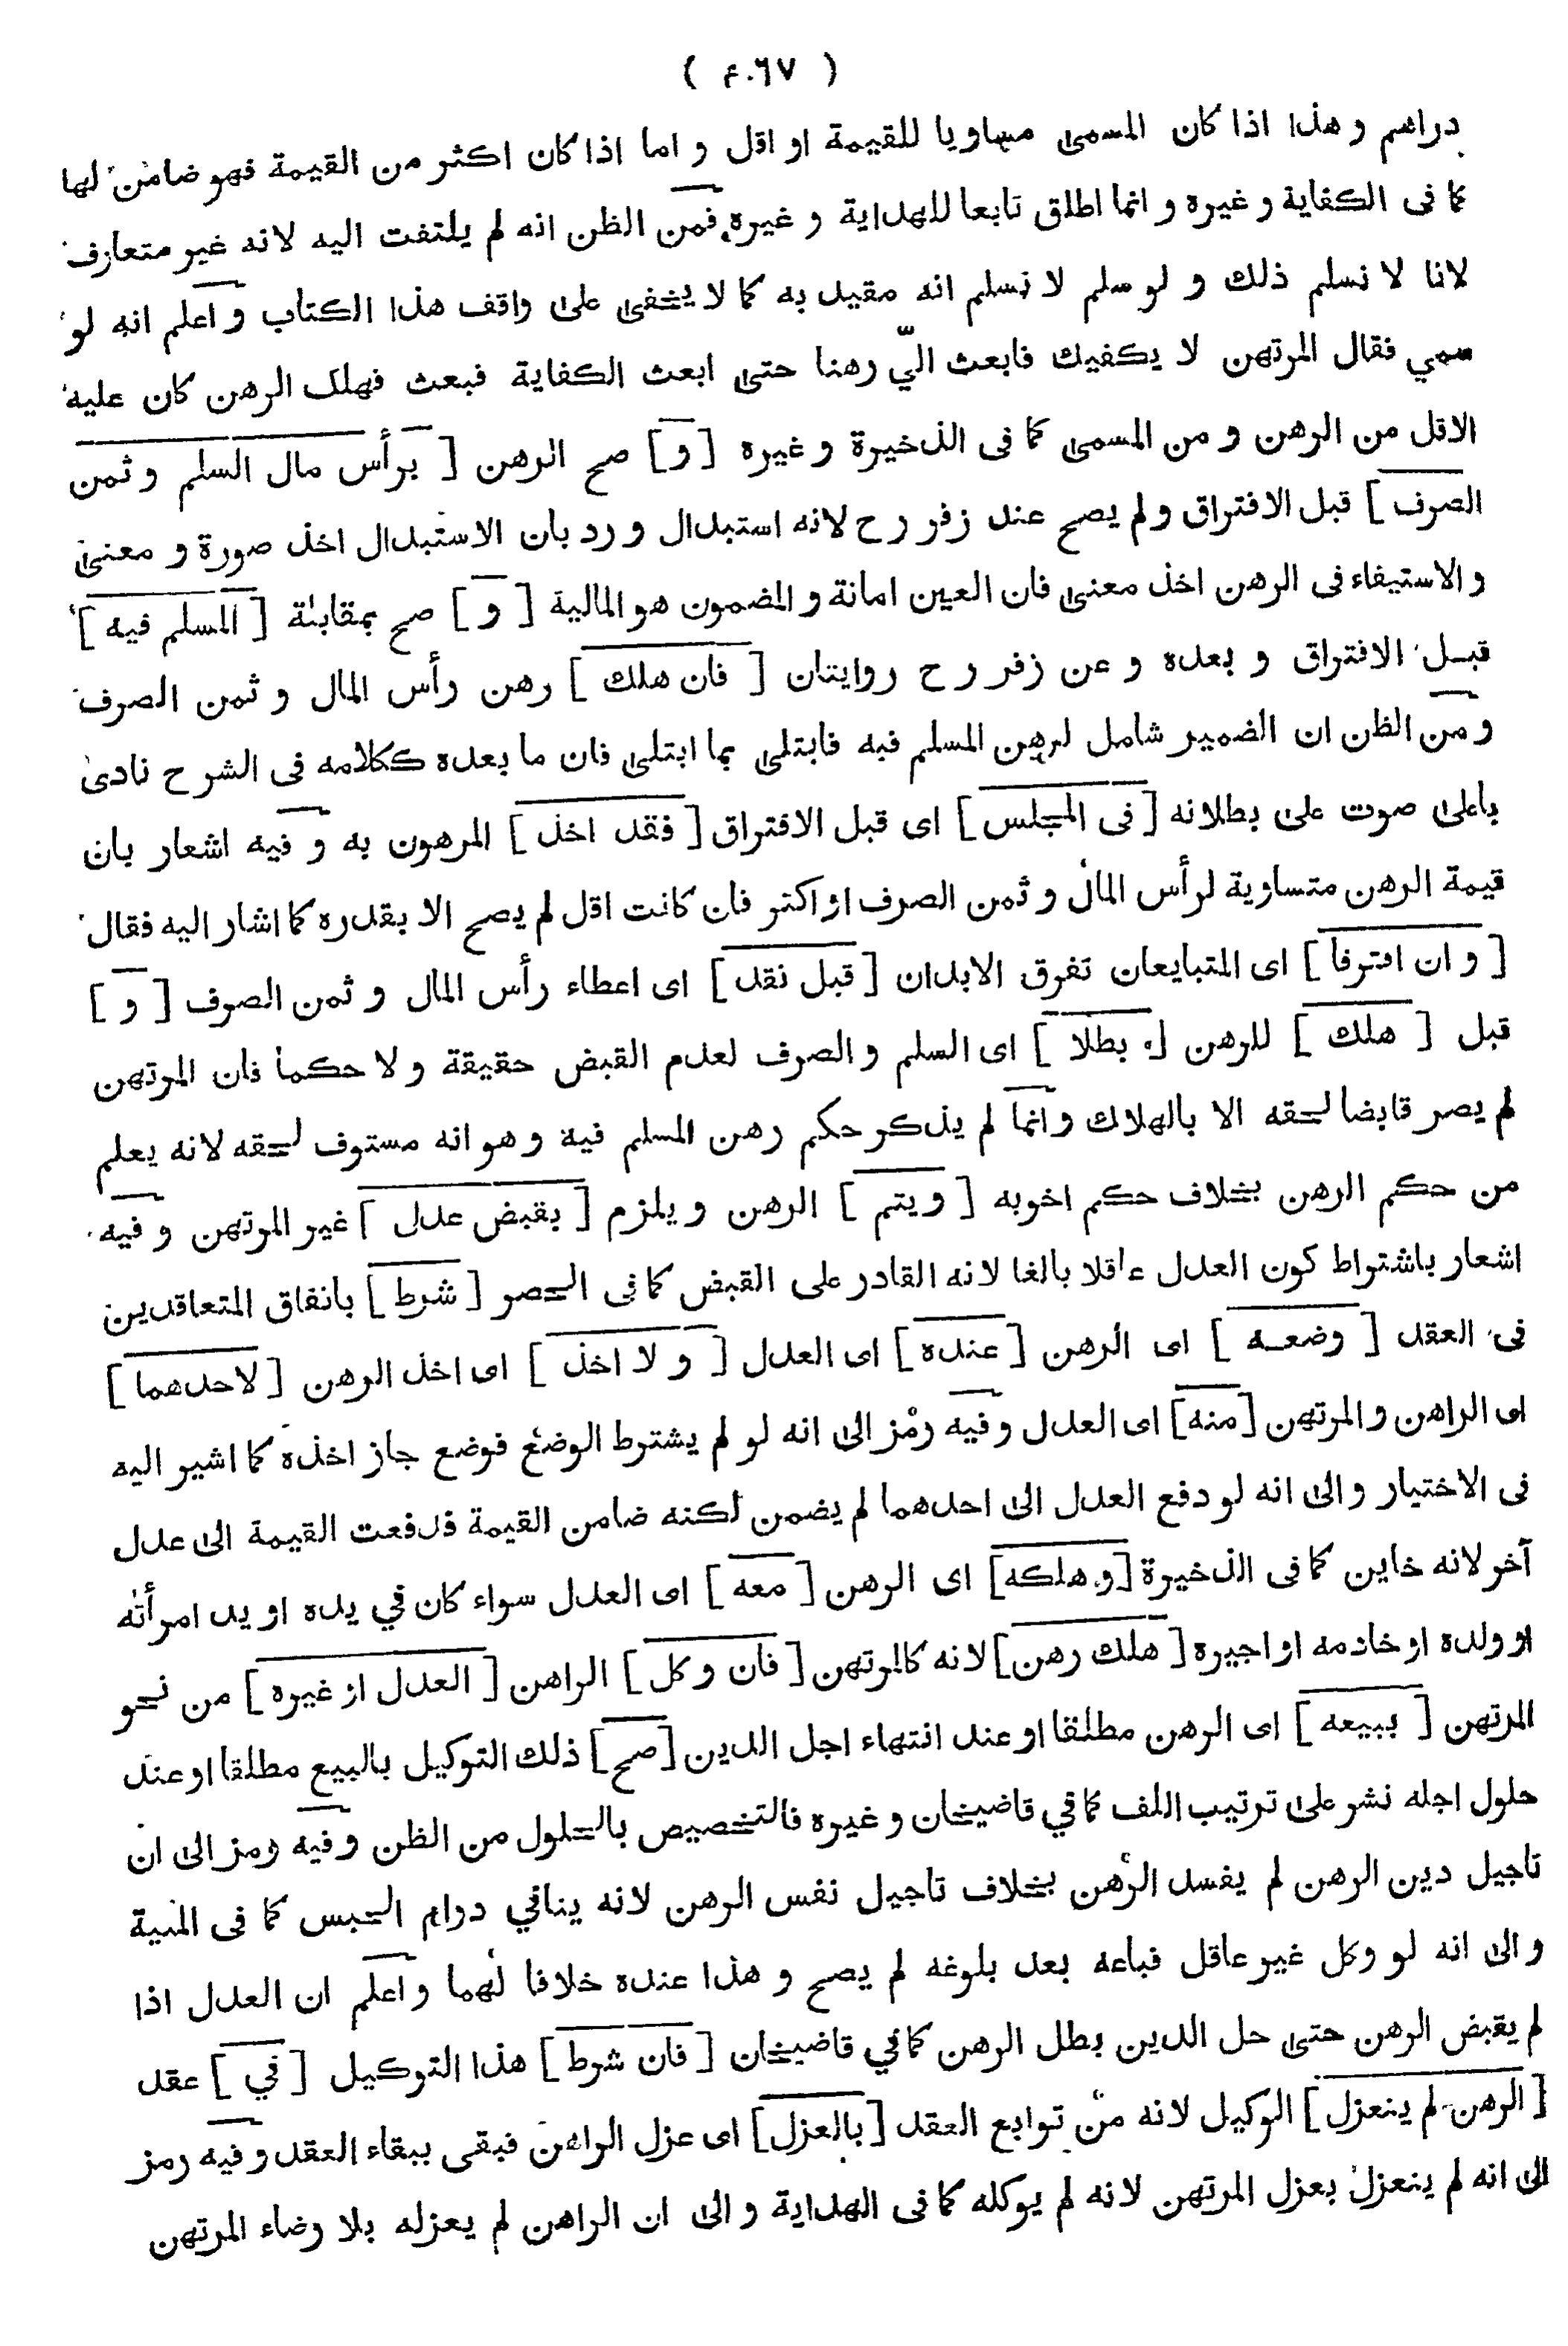 ( ۴۰۶۷ )
دراهم و هذا اذا كان المسمى مساويا للقيمة او اقل و اما اذا كان اكثر من القيمة فهو ضامن لها
كما فى الكفاية و غيره و انما اطلق تابعا للهداية و غيره فمن الظن انه لم يلتفت اليه لانه غير متعارف
لانا لا نسلم ذلك و لو سلم لا نسلم انه مقيد به كما لا يخفى على واقف هذا الكتاب و اعلم انه لو
سمي فقال المرتهن لا يكفيك فابعث اليّ رهنا حتى ابعث الكفاية فبعث فهلك الرهن كان عليه
الاقل من الرهن و من المسمى كما فى الذخيرة و غيره [ و ] صح الرهن [ برأس مال السلم و ثمن
الصرف ] قبل الافتراق و لم يصح عند زفر ر ح لانه استبدال و رد بان الاستبدال اخذ صورة و معنى
و الاستيفاء فى الرهن اخذ معنى فان العين امانة و المضمون هو المالية [ و ] صح بمقابلة [ المسلم فيه ]
قبل الافتراق و بعده و عن زفر ر ح روايتان [ فان هلك ] رهن رأس المال و ثمن الصرف
و من الظن ان الضمير شامل لرهن المسلم فيه فابتلى بما ابتلى فان ما بعده ككلامه فى الشرح نادى
باعلى صوت على بطلانه [ فى المجلس ] اى قبل الافتراق [ فقد اخذ ] المرهون به و فيه اشعار بان
قيمة الرهن متساوية لرأس المال و ثمن الصرف او اكثر فان كانت اقل لم يصح الا بقدره كما اشار اليه فقال
[ و ان افترقا ] اى المتبايعان تفرق الابدان [ قبل نقد ] اى اعطاء رأس المال و ثمن الصرف [ و ]
قبل [ هلك ] للرهن [ بطلا ] اى السلم و الصرف لعدم القبض حقيقة و لا حكما فان المرتهن
لم يصر قابضا لحقه الا بالهلاك و انما لم يذكر حكم رهن المسلم فيه و هو انه مستوف لحقه لانه يعلم
من حكم الرهن بخلاف حكم اخويه [ و يتم ] الرهن و يلزم [ بقبض عدل ] غير المرتهن و فيه
اشعار باشتراط كون العدل عاقلا بالغا لانه القادر على القبض كما فى الحصر [ شرط ] باتفاق المتعاقدين
فى العقد [ وضعه ] اى الرهن [ عنده ] اى العدل [ و لا اخذ ] اى اخذ الرهن [ لاحدهما ]
اى الراهن و المرتهن [ منه ] اى العدل و فيه رمز الى انه لو لم يشترط الوضع فوضع جاز اخذه كما اشير اليه
فى الاختيار و الى انه لو دفع العدل الى احدهما لم يضمن لكنه ضامن القيمة فدفعت القيمة الى عدل
آخر لانه خاين كما فى الذخيرة [ و هلكه ] اى الرهن [ معه ] اى العدل سواء كان في يده او يد امرأته
او ولده او خادمه او اجيره [ هلك رهن ] لانه كالمرتهن [ فان وكل ] الراهن [ العدل او غيره ] من نحو
المرتهن [ ببيعه ] اى الرهن مطلقا او عند انتهاء اجل الدين [ صح ] ذلك التوكيل بالبيع مطلقا او عند
حلول اجله نشر على ترتيب اللف كما في قاضيخان و غيره فالتخصيص بالحلول من الظن و فيه رمز الى ان
تاجيل دين الرهن لم يفسد الرهن بخلاف تاجيل نفس الرهن لانه ينافي دوام الحبس كما فى المنية
و الى انه لو وكل غير عاقل فباعه بعد بلوغه لم يصح و هذا عنده خلافا لهما و اعلم ان العدل اذا
لم يقبض الرهن حتى حل الدين بطل الرهن كما في قاضيخان [ فان شرط ] هذا التوكيل [ في ] عقد
[ الرهن لم ينعزل ] الوكيل لانه من توابع العقد [ بالعزل ] اى عزل الراهن فبقى ببقاء العقد و فيه رمز
الى انه لم ينعزل بعزل المرتهن لانه لم يوكله كما فى الهداية و الى ان الراهن لم يعزله بلا رضاء المرتهن